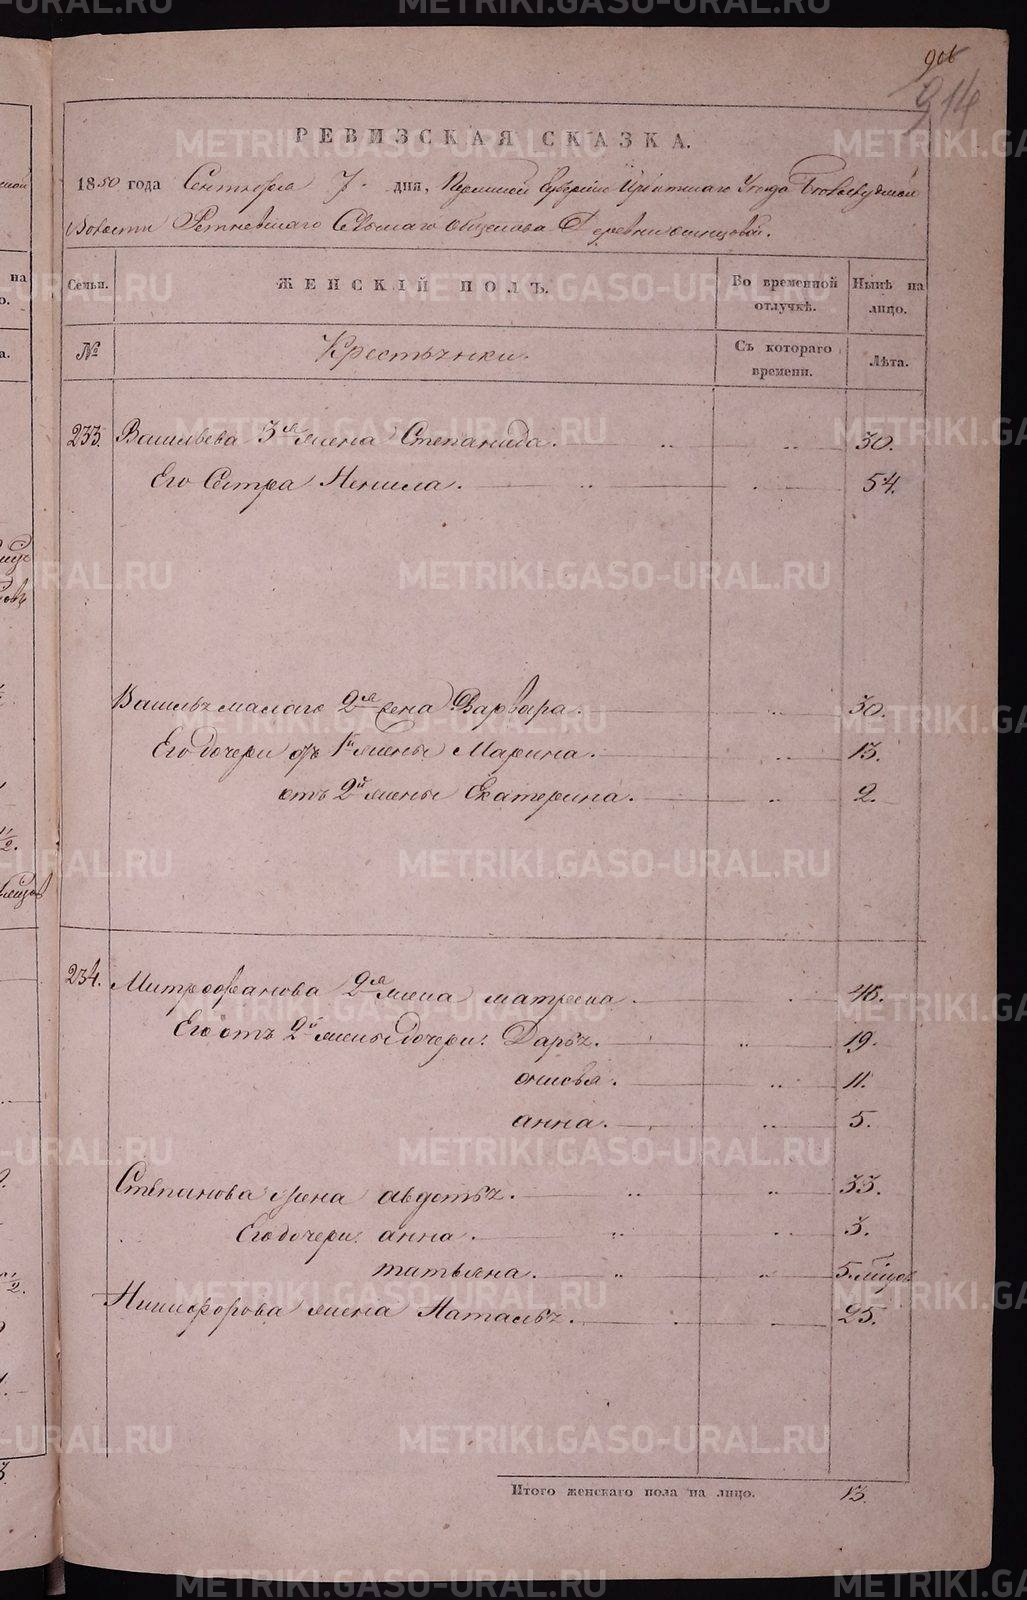 914
РЕВИЗСКАЯ СКАЗКА.
1850 года Сентября 7 дня, Пермской Губернiи Ирбитскаго Уезда
Волости Ретневскаго Сельскаго общества Деревни
Семьи. ЖЕНСКІЙ ПОЛЪ. Во временной отлучкѣ. Нынѣ на лицо.
№ Крестьянки. Съ котораго времени. Лѣта.
233. Васильева 3я жена Степанида. 30.
Его Сестра Ненила. 54.
Василья малаго 2я жена Варвара. 30.
Его дочери отъ 1й жены Марина. 13.
отъ 2й жены Екатерина. 2.
234. Митрофанова 2я жена матрена 46.
Его отъ 2й жены дочери: Дарья. 19.
11.
анна. 5.
Степанова жена авдотья. 33.
Его дочери: анна. 3.
татьяна. 5.
Никифорова жена Наталья. 25.
Итого женскаго пола на лицо. 13.
METRIKI.GASO-URAL.RU